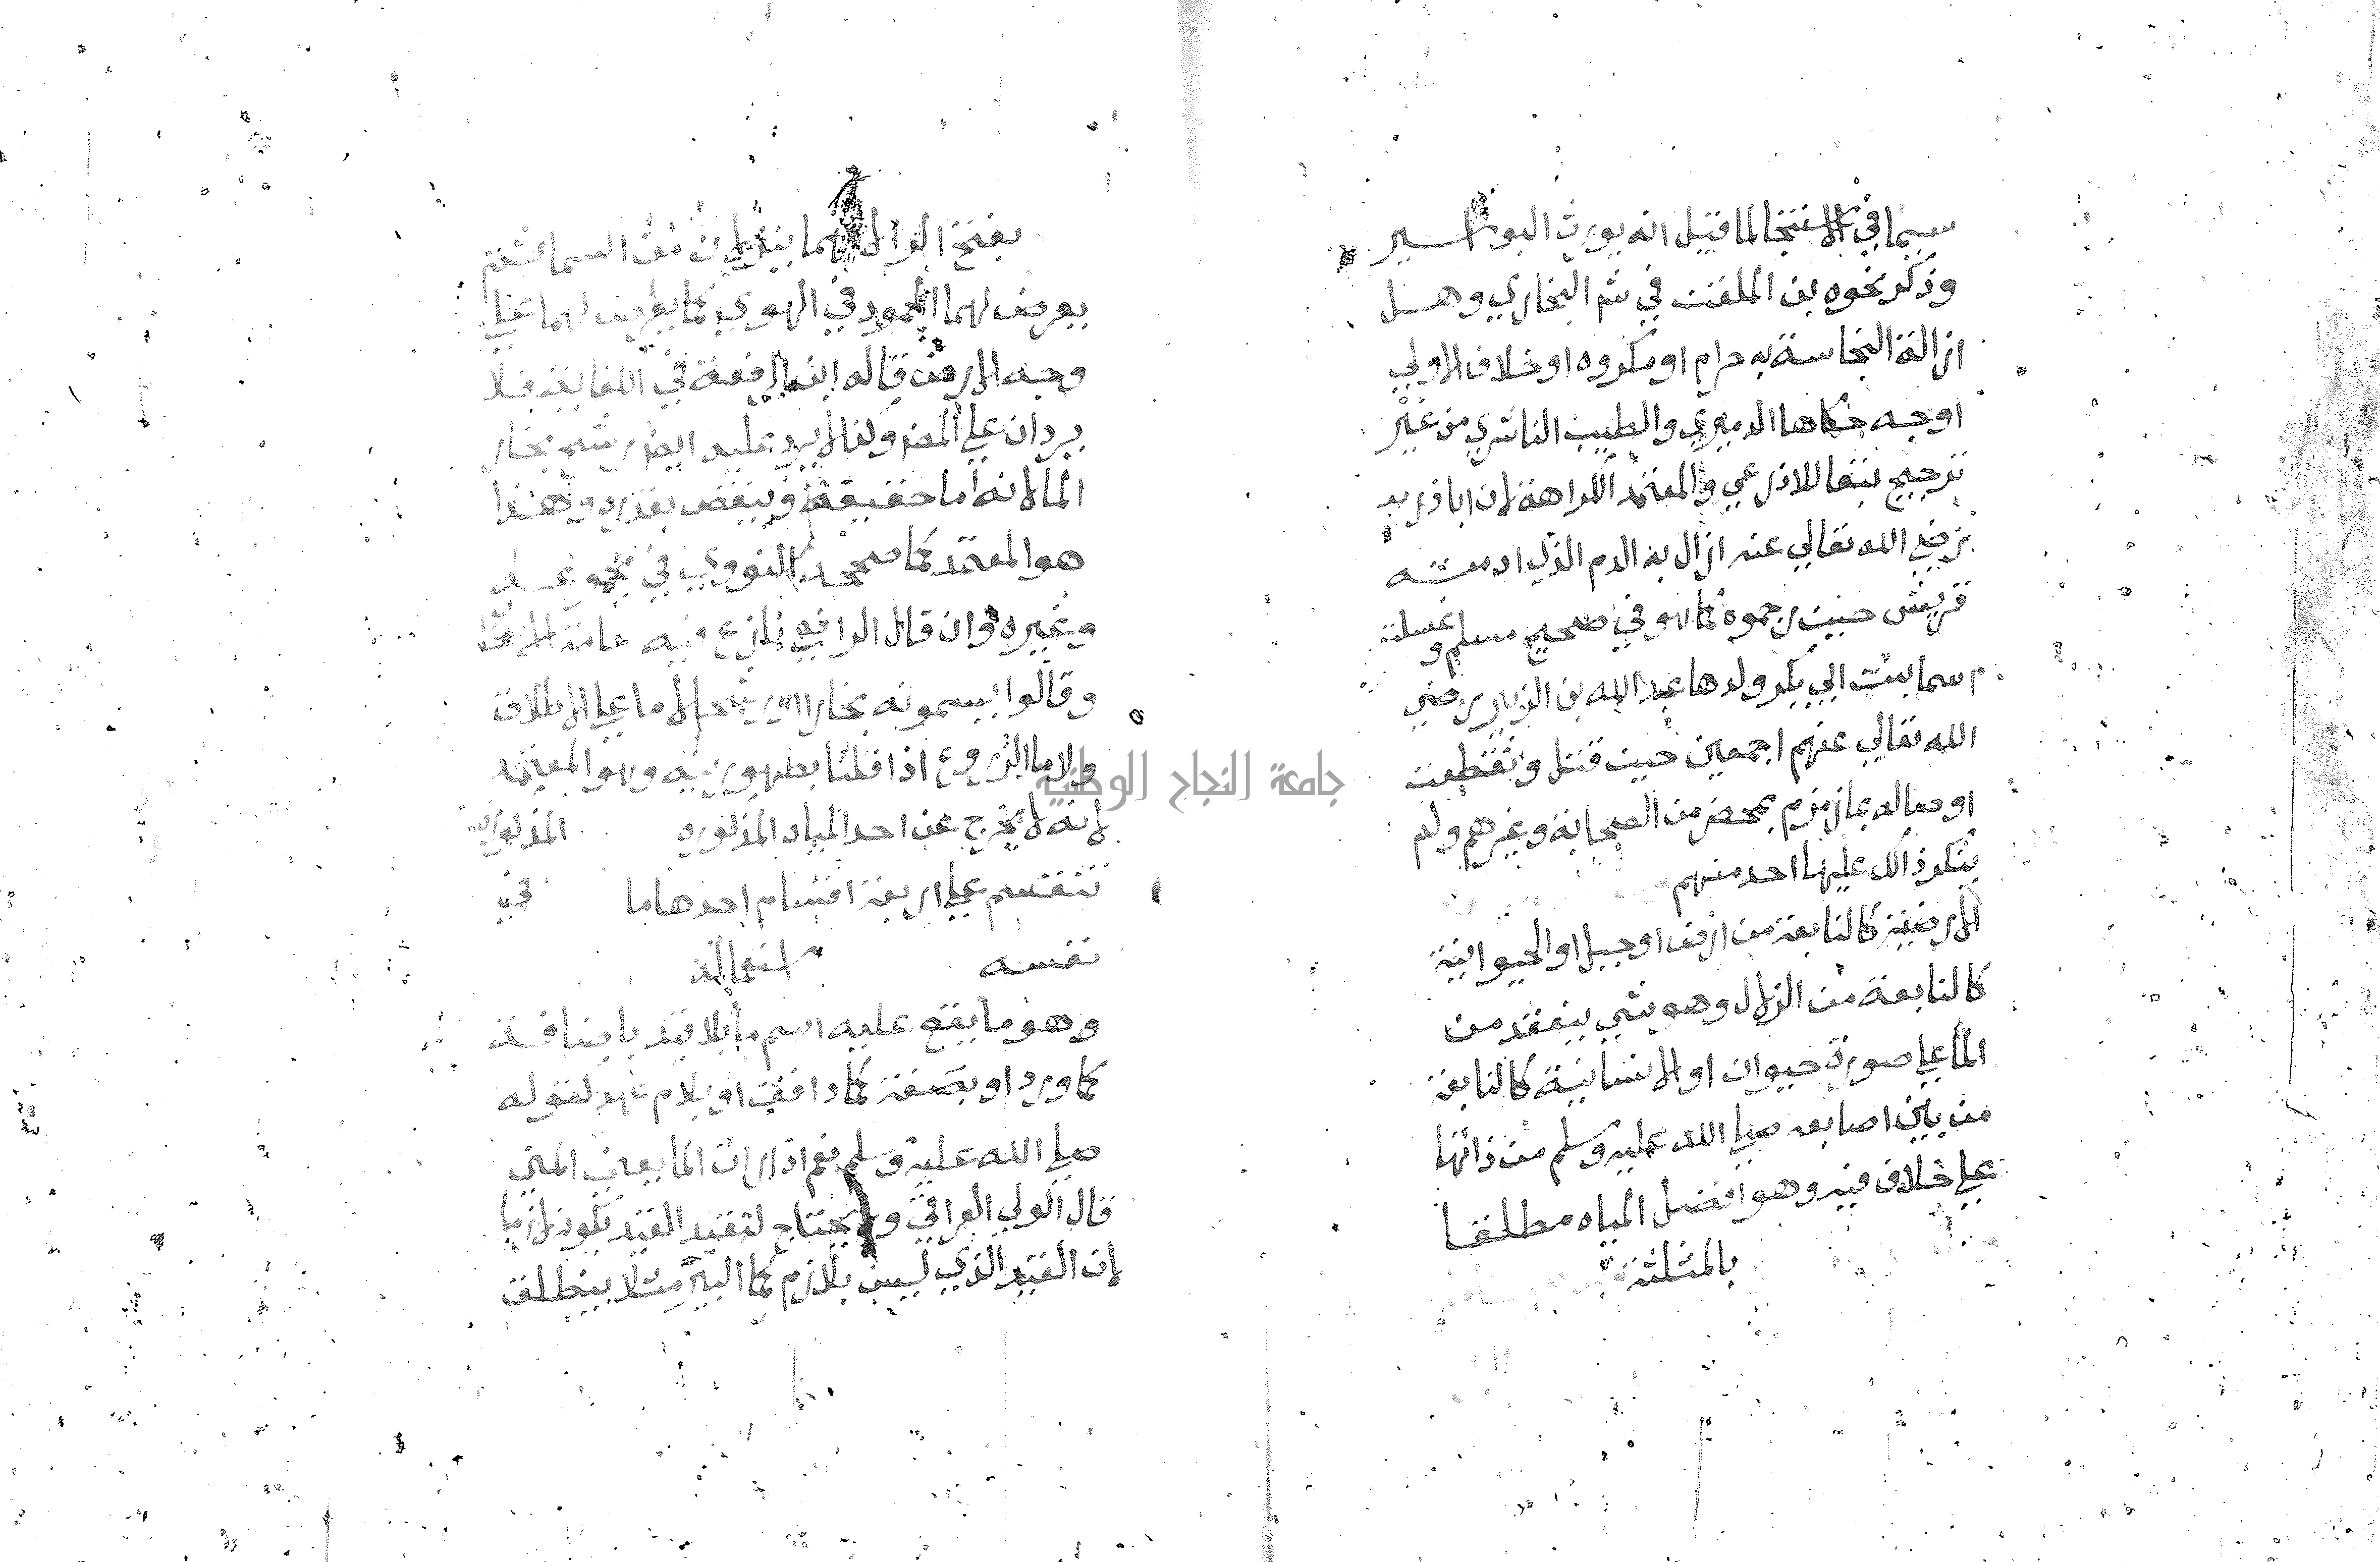 سيما في الاستنجا لما قيل انه يورث البواسير
وذكر نحوه بن الملقن في شم البخاري وهل
ازالة النجاسة به حرام او مكروه او خلاف الاولي
اوجه حكاها الدميري والطيب الناشري من غير
ترجيح تبعا للاذرعي والمعتمد الكراهة لان اباذر
رضي الله تعالي عنه ازال به الدم الذي ادمته
قريش حين رجموه كما هو في صحيح مسلم وغسلت
اسما بنت ابي بكر ولدها عبد الله بن الزبير رضي
الله تعالي عنهم اجمعين حين قتل وتقطعت
اوصاله بماز مزم بمحضر من الصحابة وغيرهم ولم
ينكر ذالك عليها احد منهم
الارضية كالنابعة من ارض او جبل او الحيوانية
كالنابعة من الزلال وهو شي ينعقد من
الما علي صورة حيوان او الانسانية كالنابعة
من بين اصابعه صلي الله عليه وسلم من ذاتها
علي خلاف فيه وهو افضل المياه مطلقا
بالمثلثة
بفتح الرا لانهما ينزلان من السما ثم
يعرض لهما الجمود في الهوي كما يعرض لهما علي
وجه الارض قاله ابن الرفعة في الكفاية فلا
يردان علي المص وكذا لا يرد عليه ايض رشح بخار
الما لانه ما حقيقة وينقص بقدره وهذا
هو المعتمد كما صححه النووي في مجموعه
وغيره وان قال الرافعي نازع فيه عامة
وقالوا يسمونه بخارا او رشحا لا ما علي الاطلاق
ولا ما الزروع اذا قلنا بطهوريته وهو المعتمد
لانه لا يخرج عن احد المياه المذكوره المذكورة
تنقسم علي اربعة اقسام احدها ما في
نفسه استعماله
وهو ما يقع عليه اسم ما بلا قيد باضافة
كما ورد او بصفة كما دافق او بلام عهد لقوله
صلي الله عليه وسلم نعم اذا رات الما يعني المني
قال الولي العراقي ولا يحتاج لتقيد القيد بكونه لازما
لان القيد الذي ليس بلازم كما البير مثلا ينطلق
جامعة النجاح الوطنية